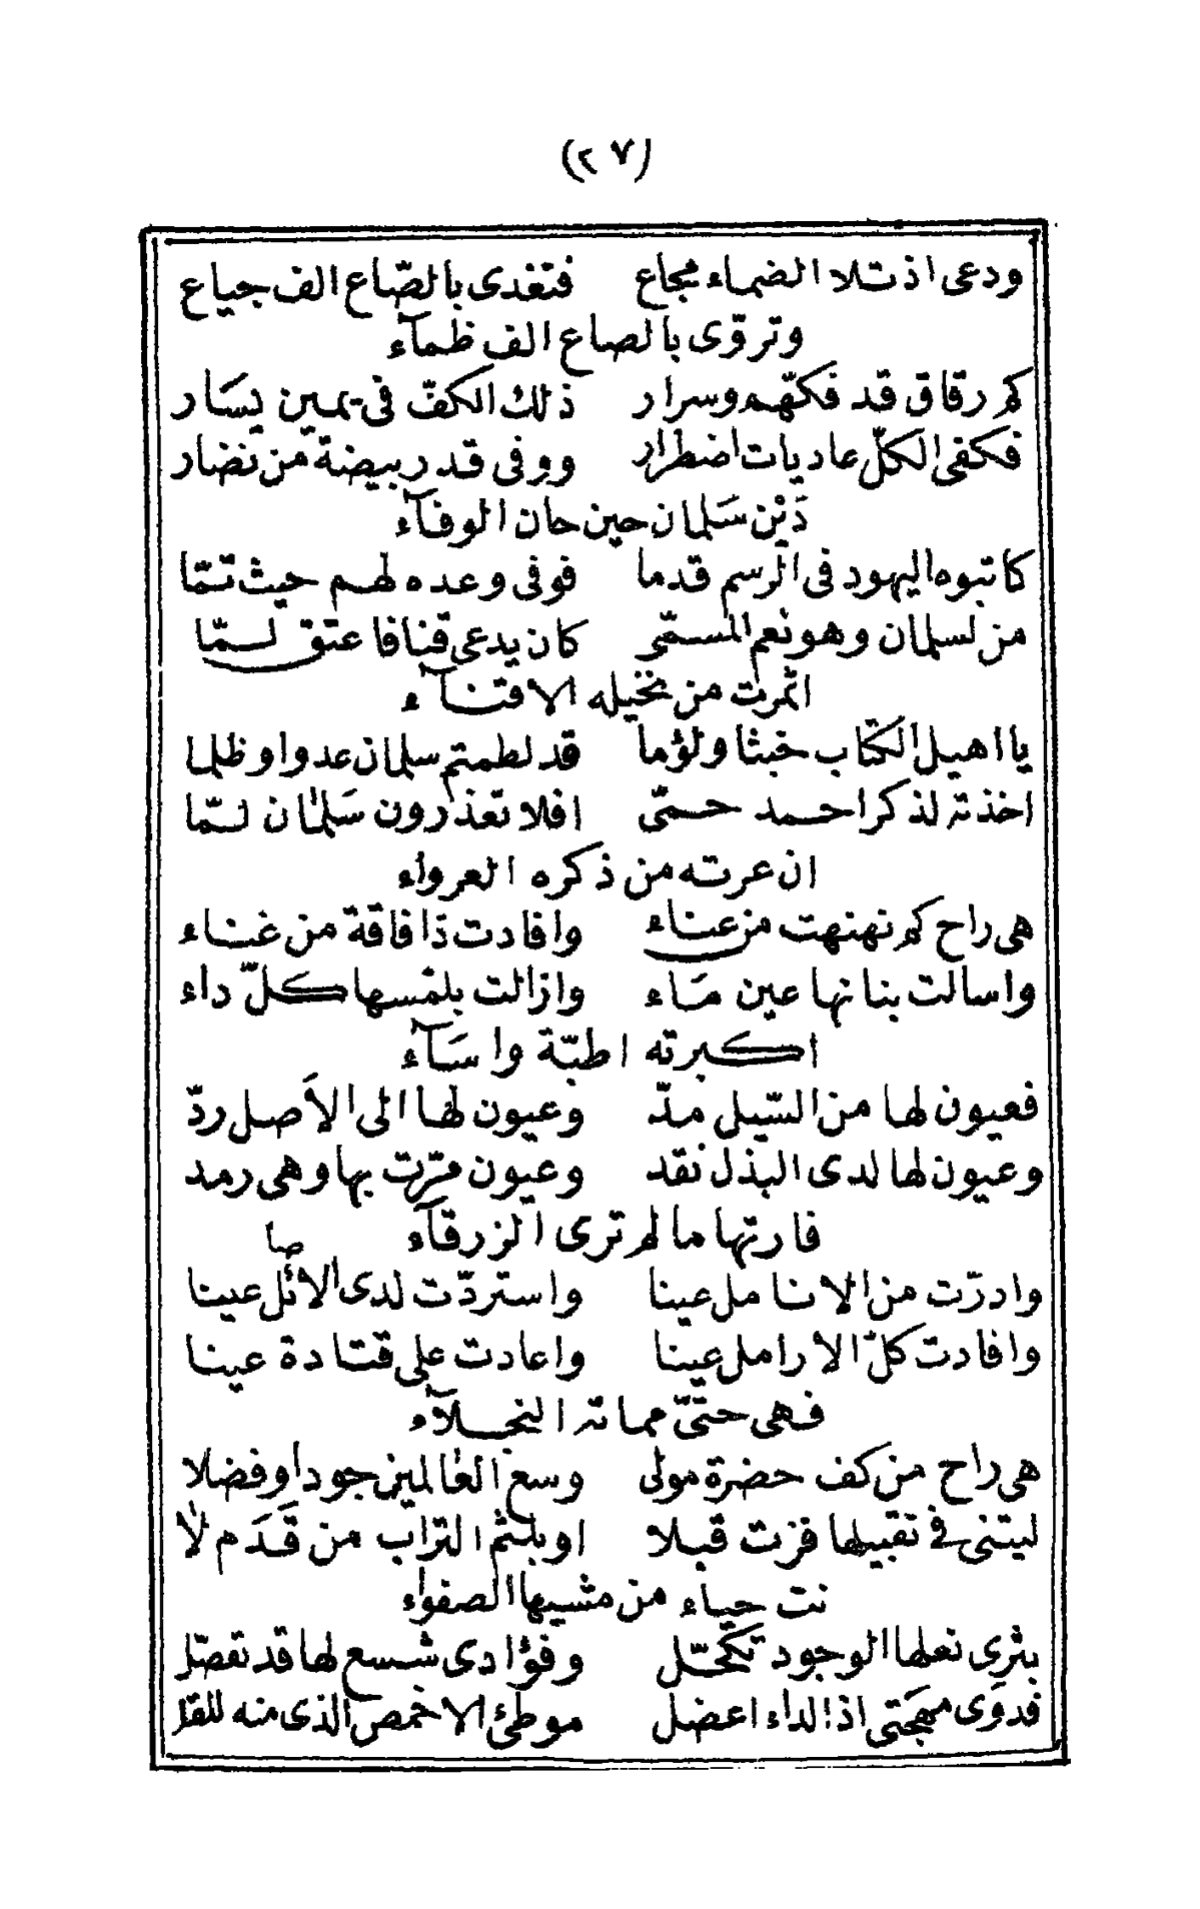 (٢٧)
ودعى اذ تلا الضماء مجاع فتغدى بالصّاع الف جياع
وتروّى بالصاع الف ظمآء
كم رقاق قد فكهّم وسرار ذلك الكفّ فى يمين يسَار
فكفى الكلّ عاديات اضطرار ووفى قدر بيضة من نضار
دَيْن سَلمان حين حان الوفآء
كاتبوه اليهود فى الرسم قدما فوفى وعده لهم حيث تمّا
من لسلمان وهو نعم المسمّى كان يدعى قنا فاعتق لمّا
اثمرت من نخيله الاقنآء
يا اهيل الكتاب خبثا ولؤما قد لطمتم سلمان عدوا وظلما
اخذته لذكر احمد حمّى افلا تعذرون سَلمان لمّا
ان عرته من ذكره العرواء
هى راح كم نهنهت من عناء وافادت ذا فاقة من غناء
واسالت بنانها عين مَاء وازالت بلمسها كلّ داء
اكبرته اطبّة واسَآء
فعيون لها من السّيل مدّ وعيون لها الى الاَصل ردّ
وعيون لها لدى البذل نقد وعيون مرّت بها وهى رمد
فارتها ما لم ترى الزرقآء
صا
وادرّت من الانامل عينا واستردّت لدى الائل عينا
وافادت كلّ الارامل عينا واعادت على قتادة عينا
فهى حتىّ مماته النجلآء
هى راح من كف حضرة مولى وسع العالمين جودا وفضلا
ليتنى فى تقبيلها فزت قبلا او بلثم التراب من قَدَم لا
نت حياء من مشيها الصفواء
بثرى نعلها الوجود تكحّل وفؤادى شسع لها قد تفصّل
فدوَى مهجتى اذا الداء اعضل موطئ الاخمص الذى منه للقل